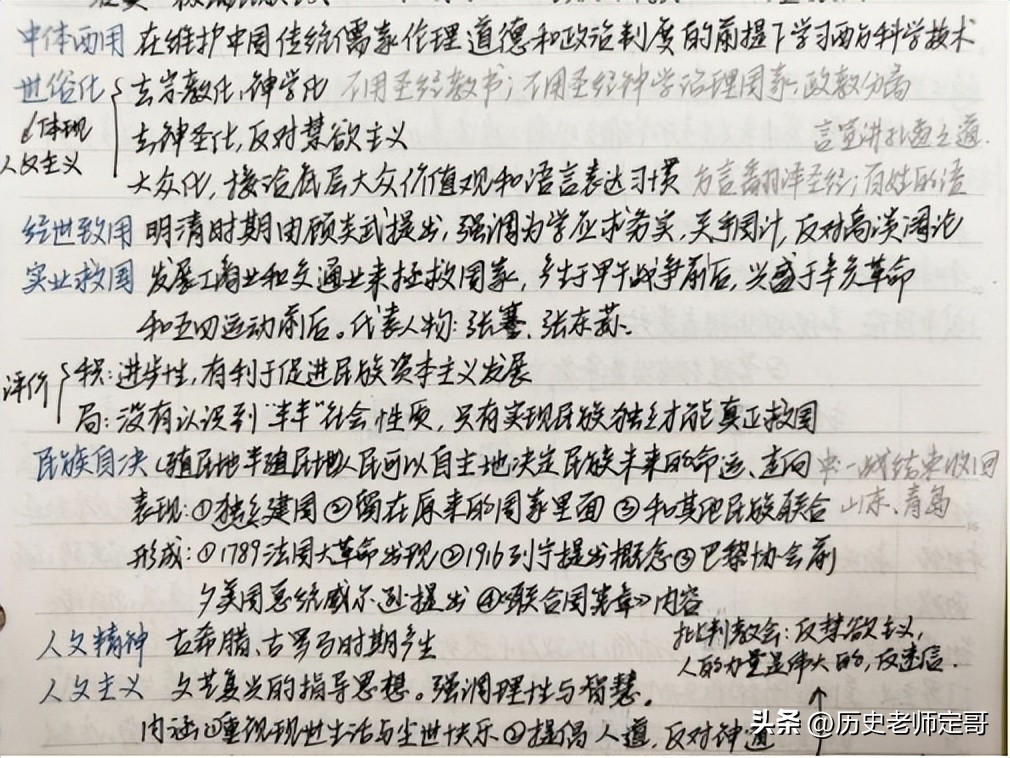 中体西用 在维护中国传统儒家伦理道德和政治制度的前提下学习西方科学技术
世俗化 去宗教化,神学化 不用圣经教书;不用圣经神学治理国家,政教分离
体现 人文主义 去神圣化,反对禁欲主义 言宣讲扎迪之道.
大众化,接洽底层大众价值观和语言表达习惯 方言翻译圣经;百姓的语
经世致用 明清时期由顾炎武提出,强调为学应求务实,关乎国计,反对高谈阔论
实业救国 发展工商业和交通业来拯救国家,产生于甲午战争前后,兴盛于辛亥革命
和五四运动前后。代表人物:张謇、张东荪、
评价 积:进步性,有利于促进民族资本主义发展
局:没有认识到"半半"社会性质,只有实现民族独立才能真正救国
民族自决 (殖民地半殖民地)人民可以自主地决定民族未来的命运、走向 中:一战结束收回
表现:①独立建国 ②留在原来的国家里面 ③和其他民族联合 山东、青岛
形成:①1789法国大革命出现 ②1916列宁提出概念 ③巴黎协会前
夕美国总统威尔逊提出 ④《联合国宪章》内容
人文精神 古希腊、古罗马时期产生
批判教会:反禁欲主义,
人的力量是伟大的,反迷信.
人文主义 文艺复兴的指导思想。强调理性与智慧。
内涵:①重视现世生活与尘世快乐 ②提倡人道,反对神道
头条 @历史老师定哥